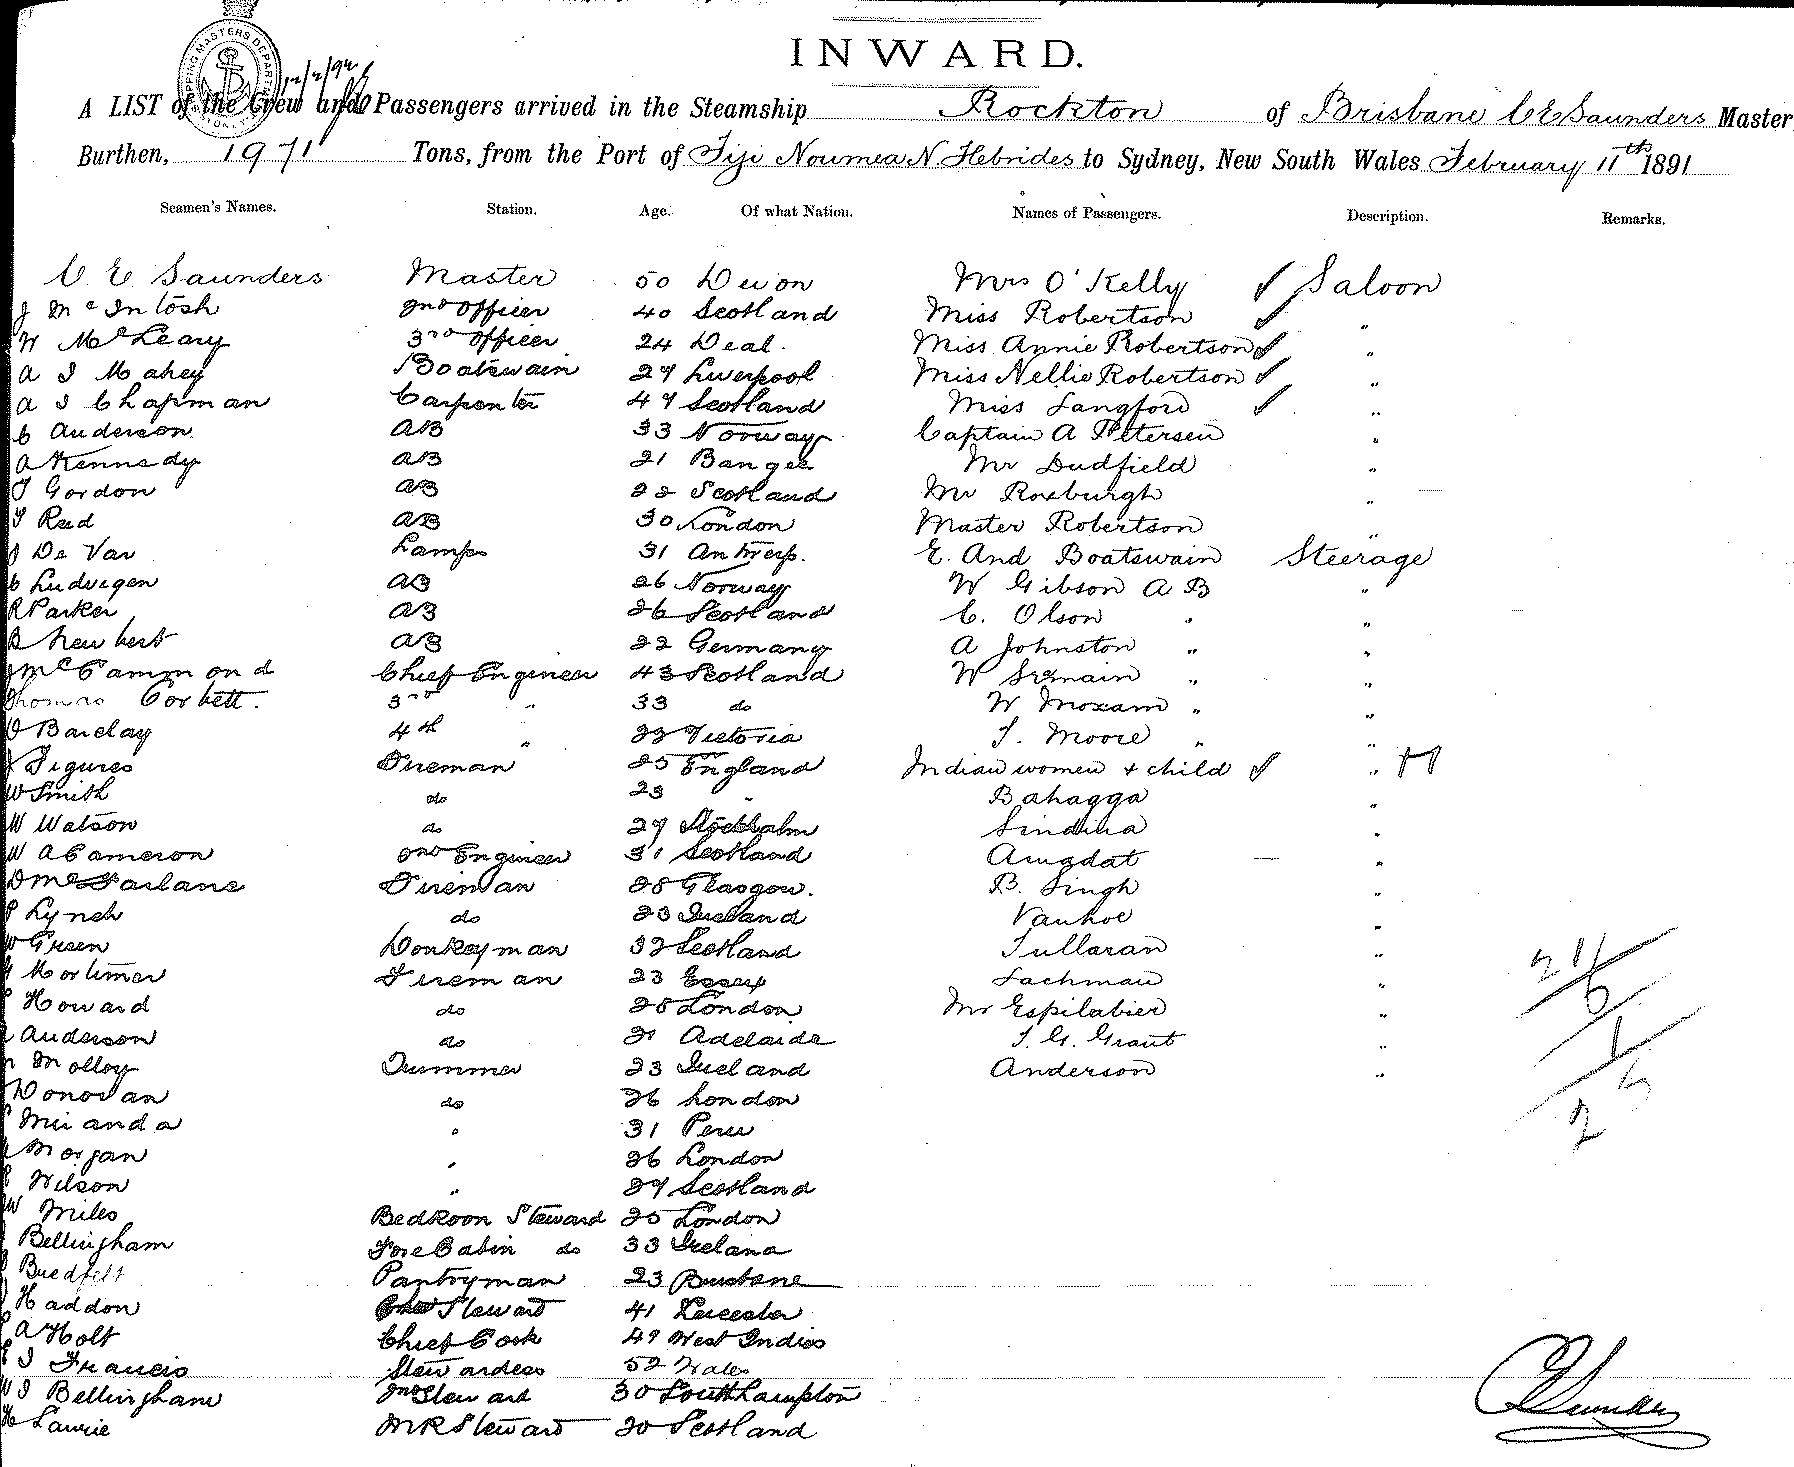 INWARD.
A LIST of the Crew and Passengers arrived in the Steamship Rockton of Brisbane C E Saunders Master
Burthen, 1971 Tons, from the Port of Fiji Noumea N. Hebrides to Sydney, New South Wales February 11th 1891
Seamen's Names. Station. Age. Of what Nation. Names of Passengers. Description. Remarks.
C E Saunders Master 50 Devon Mrs O'Kelly Saloon
J Mc Intosh 2nd officer 40 Scotland Miss Robertson "
W McLeary 3rd officer 24 Deal. Miss Annie Robertson "
A J Mahey Boatswain 27 Liverpool Miss Nellie Robertson "
A J Chapman Carpenter 47 Scotland Miss Langford "
C Anderson AB 33 Norway Captain A Petersen "
A Kennedy AB 21 Mr Dudfield "
J Gordon AB 22 Scotland Mr Roxburgh "
J Reid AB 30 London Master Robertson "
J De Var Lamps 31 Antwerp. E. And Boatswain Steerage
C Ludvigen AB 26 Norway W Gibson A B "
R Parker AB 26 Scotland C. Olson " "
AB 22 Germany A Johnston " "
J McCammond Chief Engineer 43 Scotland W " "
Thomas Corbett. 3rd " 33 do W Moxam " "
Barclay 4th " 22 Victoria T. Moore " "
Figures Fireman 25 England Indian women + child "
W Smith do 23 " Bahagga "
W Watson do 27 Stockholm "
W A Cameron 2nd Engineer 31 Scotland "
D McFarlane Fireman 28 Glasgow. B. Singh "
P Lynch do 23 Ireland "
W Green Donkeyman 32 Scotland "
Mortimer Fireman 23 Essex Lachman "
Howard do 28 London Mr Espilabier "
Anderson do 21 Adelaide T. G. Grant "
Molloy Trimmer 23 Ireland Anderson "
Donovan do 26 London
Miranda " 31 Peru
Morgan " 26 London
Wilson " 27 Scotland
W Miles Bedroom Steward 25 London
Bellingham Fore Cabin do 33 Ireland
Pantryman 23 Brisbane
Haddon Steward 41 Leicester
A Holt Chief Cook 49 West Indies
E J Francis Stewardess 52 Wales
W J Bellingham 2nd Steward 30 Southampton
H Laurie MR Steward 20 Scotland
C E Saunders